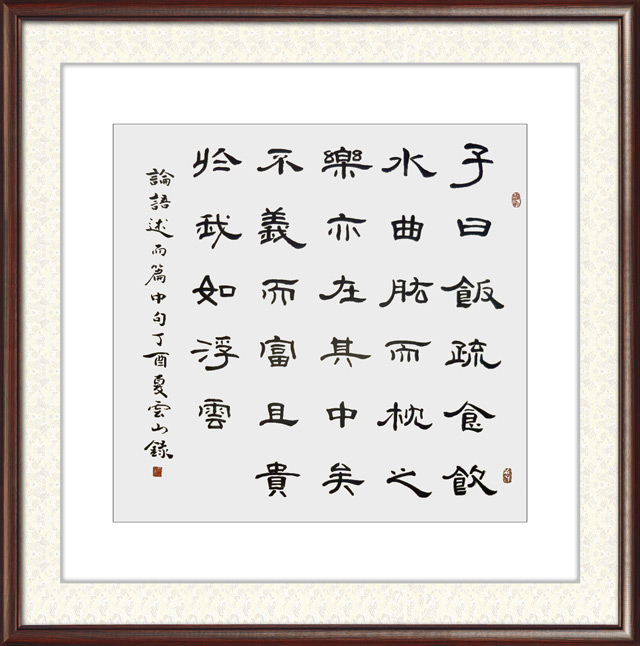 子曰飯疏食飲
水曲肱而枕之
樂亦在其中矣
不義而富且貴
於我如浮雲
論語述而篇中句丁酉夏雲山錄